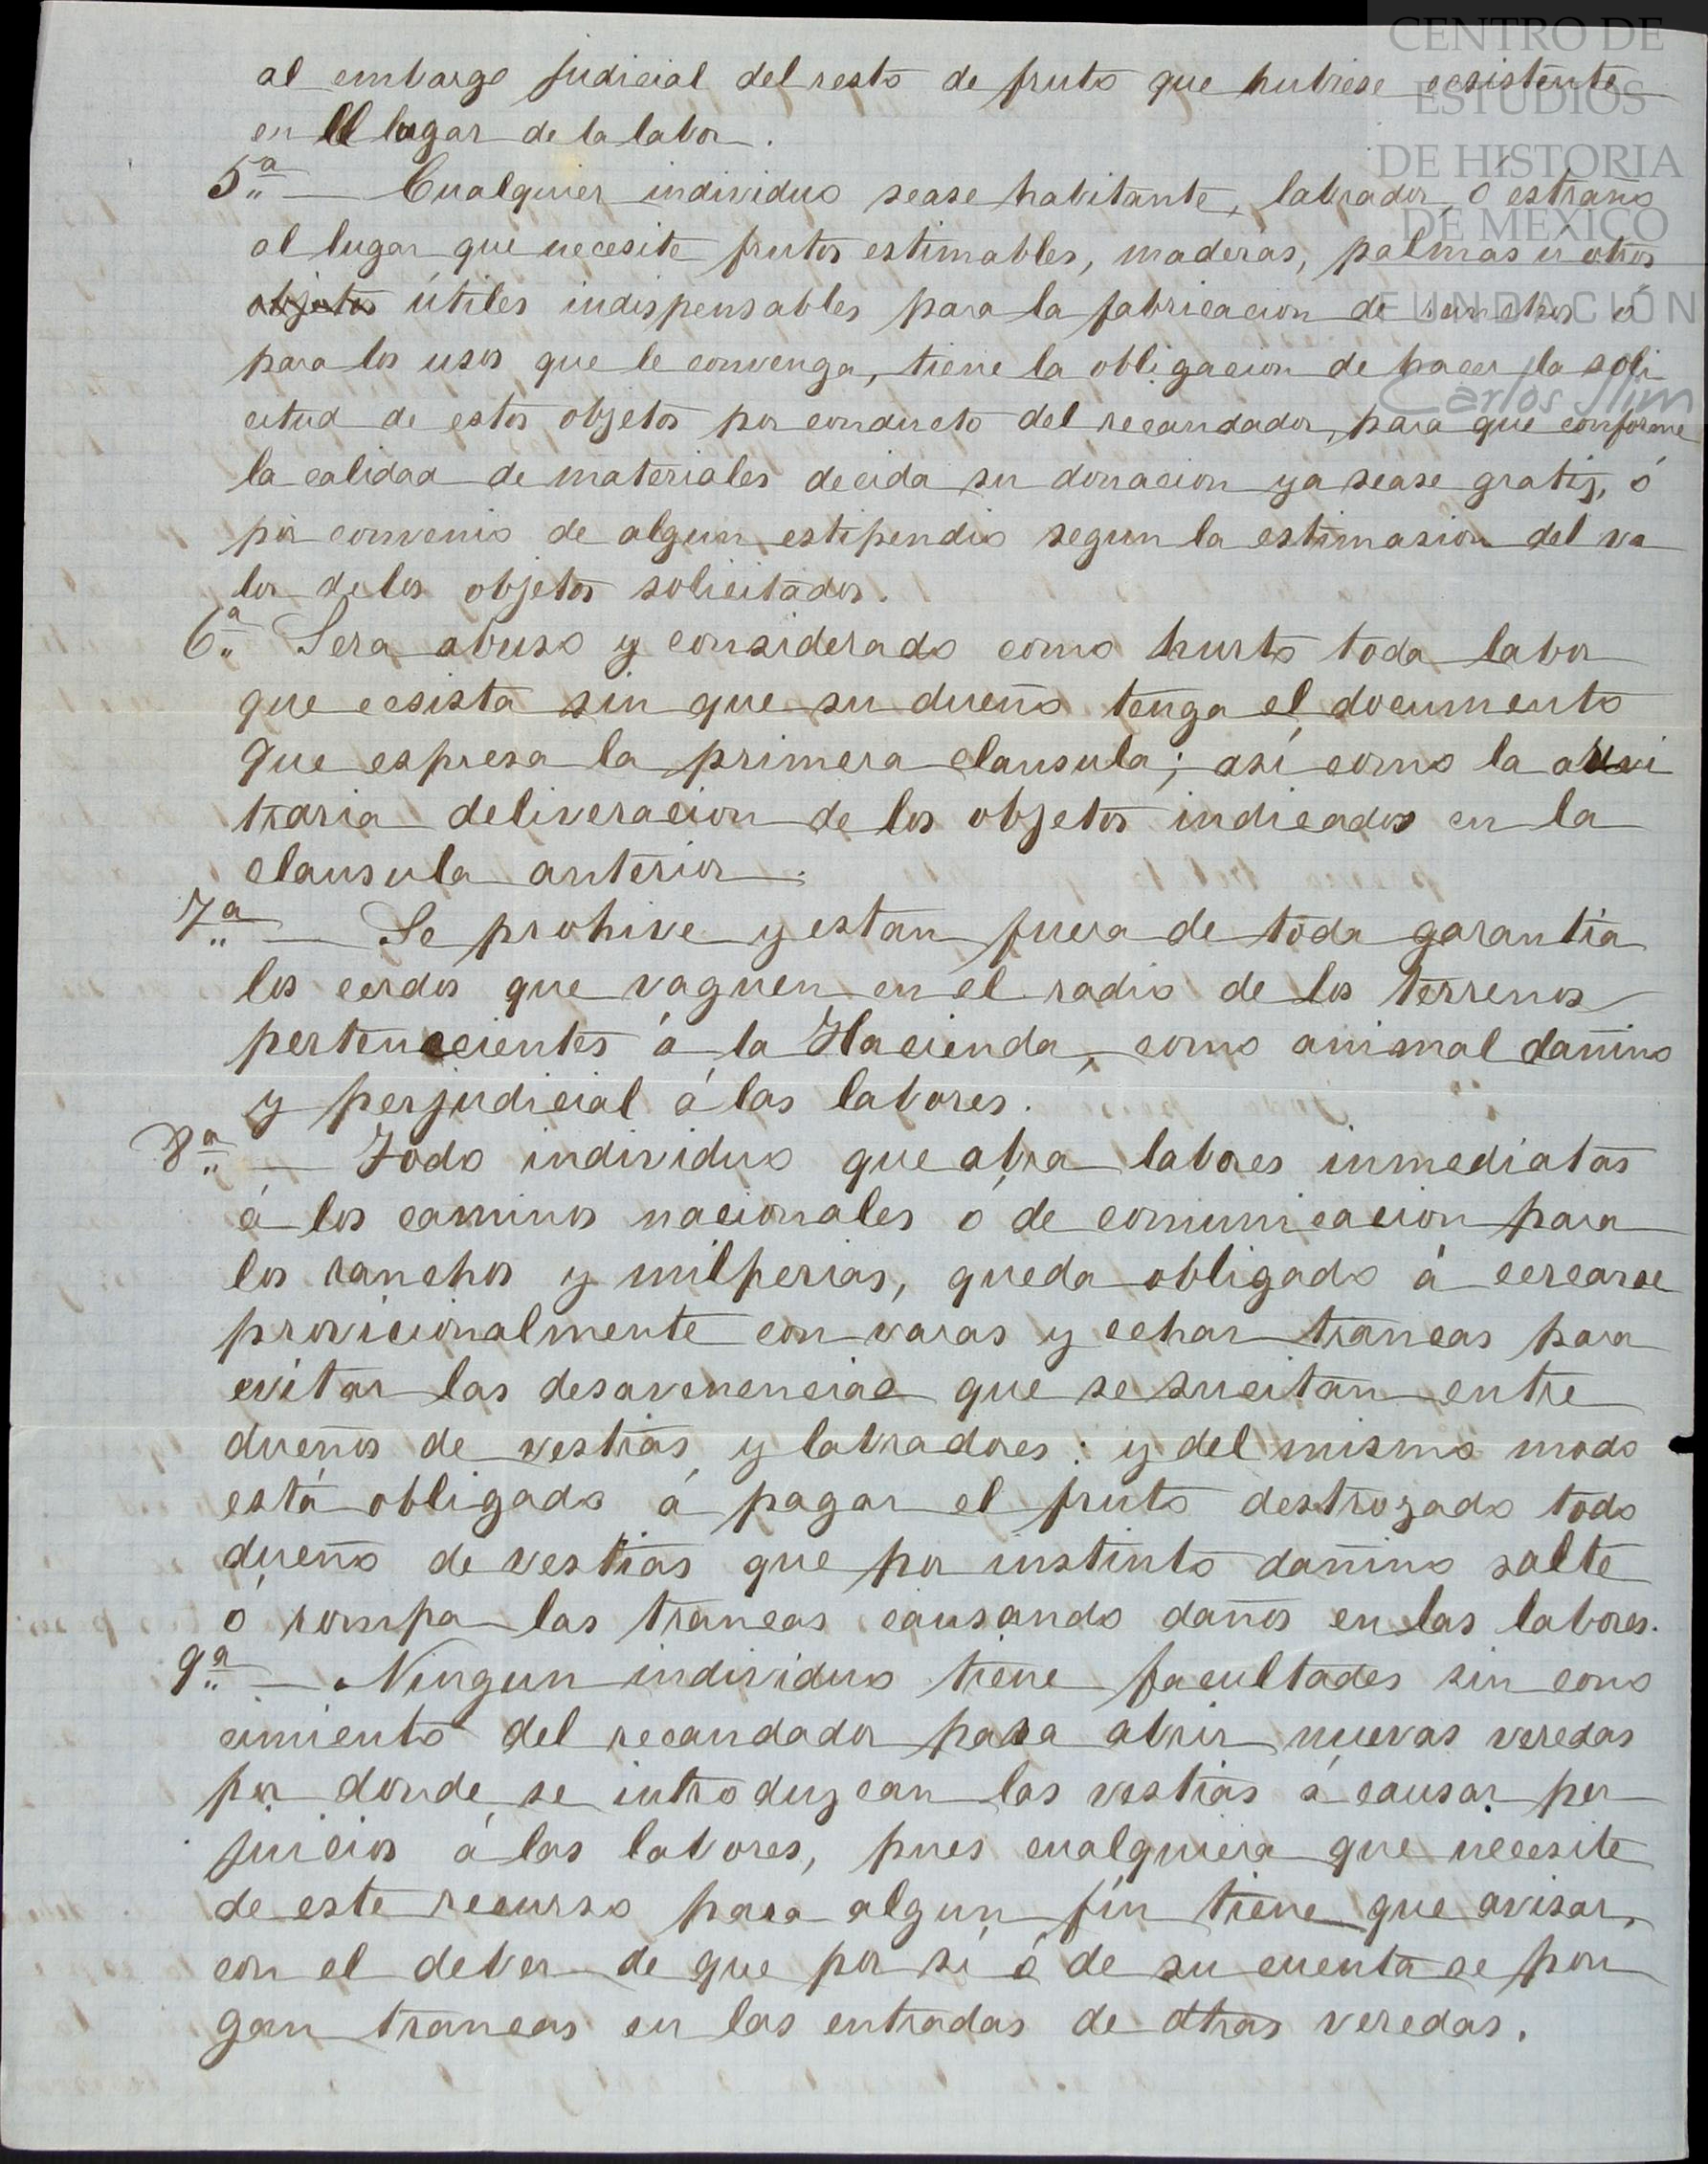 al embargo judicial del resto de fruto que hubiese ecsistente
en el lugar de la labor.
5ª — Cualquier individuo sease habitante, labrador, o estraño
al lugar que necesite frutos estimables, maderas, palmas ú otros
objetos útiles indispensables para la fabricacion de ranchos ó
para los usos que le convenga, tiene la obligacion de hacer la soli
citud de estos objetos por conducto del recaudador, para que conforme
la calidad de materiales decida su donacion ya sease gratis, ó
por convenio de algun estipendio segun la estimasion del va
lor de los objetos solicitados.
6ª Sera abuso y considerado como hurto toda labor
que ecsista sin que su dueño tenga el documento
que espresa la primera clausula; así como la arvi
traria deliveracion de los objetos indicados en la
clausula anterior.
7ª — Se prohive y estan fuera de toda garantia
los cerdos que vaguen en el radio de los terrenos
pertenecientes á la Hacienda, como animal dañino
y perjudicial á las labores.
8ª — Todo individuo que abra labores inmediatas
á los caminos nacionales ó de comunicacion para
los ranchos y milperias, queda obligado á cercarse
provicionalmente con varas y echar trancas para
evitar las desavenencias que se sucitan entre
dueños de vestias y labradores: y del mismo modo
está obligado á pagar el fruto destrozado todo
dueño de vestias que por instinto dañino salte
ó rompa las trancas causando daños en las labores.
9ª — Ningun individuo tiene facultades sin cono
cimiento del recaudador para abrir nuevas veredas
por donde se introduzcan las vestias á causar per
juicios á las labores, pues cualquiera que necesite
de este recurso para algun fin tiene que avisar,
con el deber de que por si ó de su cuenta se pon
gan trancas en las entradas de otras veredas.
CENTRO DE
ESTUDIOS
DE HISTORIA
DE MÉXICO
FUNDACIÓN
Carlos Slim